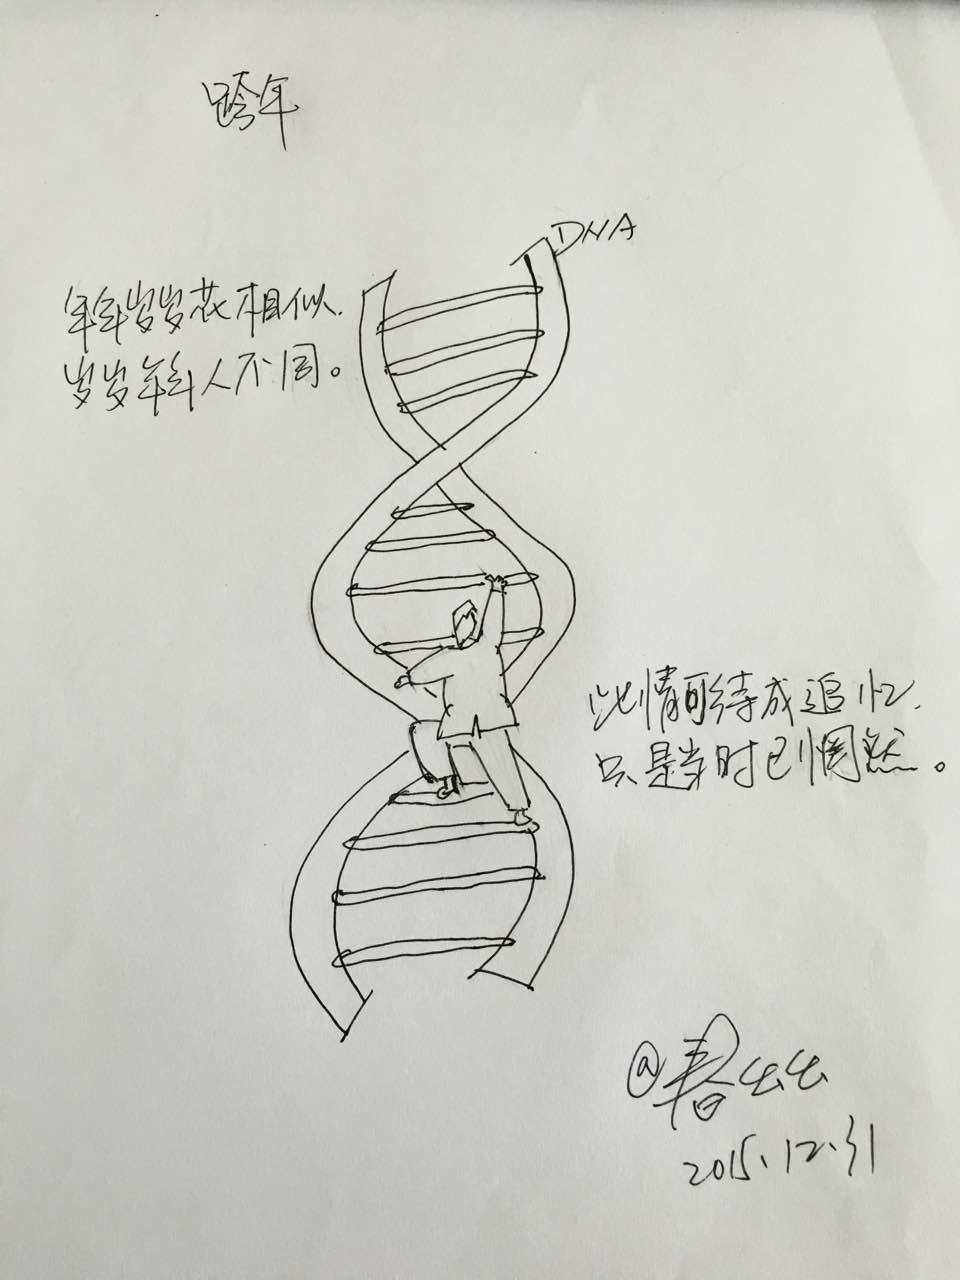 跨年
DNA
年年岁岁花相似.
岁岁年年人不同。
此情可待成追忆.
只是当时已惘然。
@春生生
2015.12.31